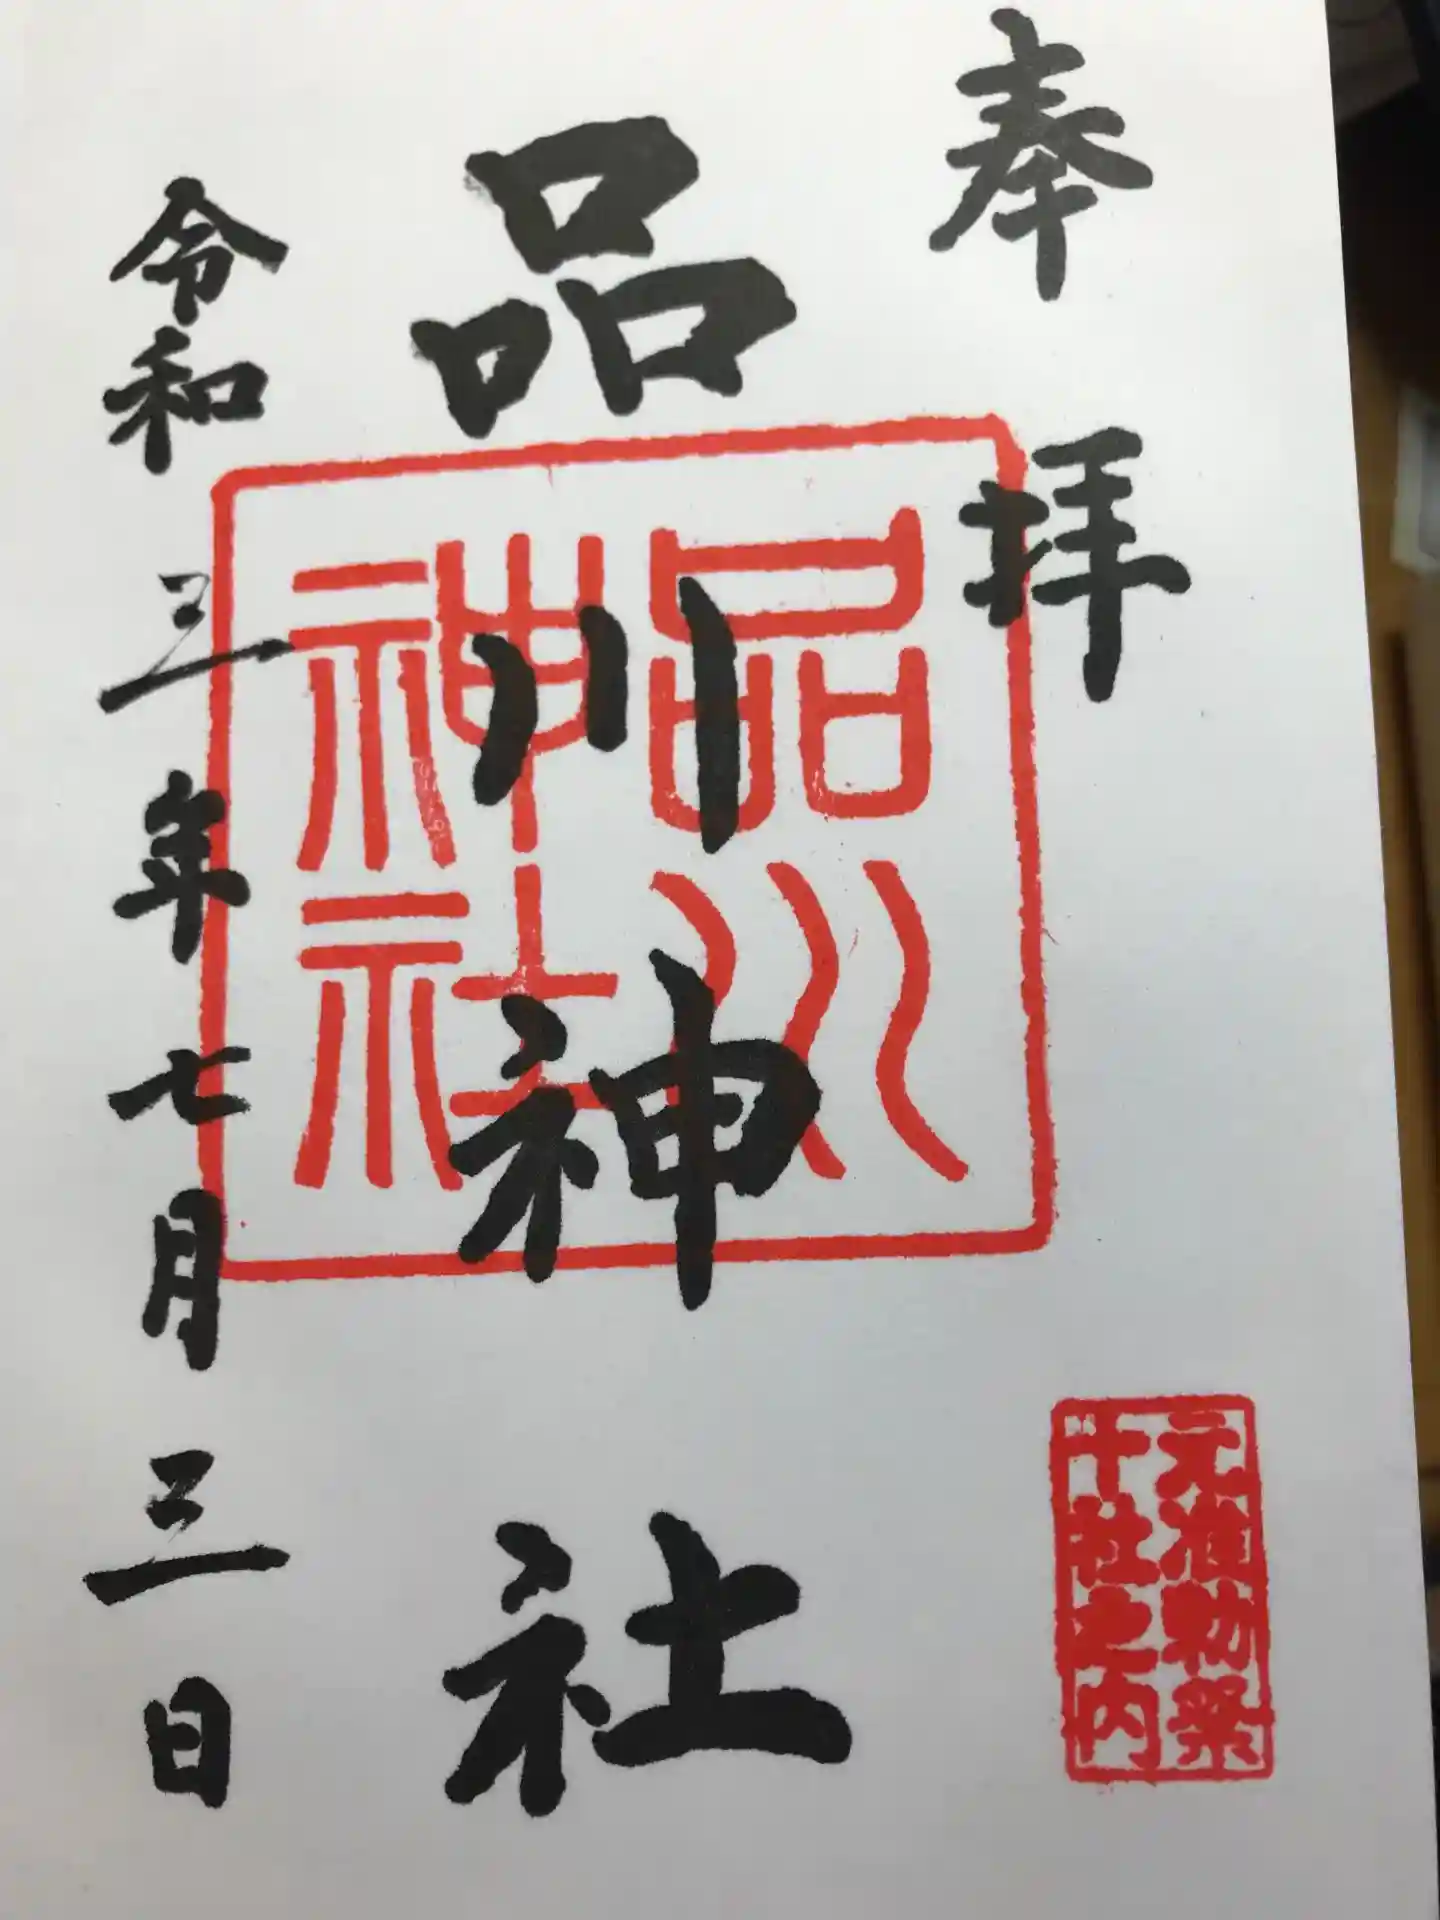 奉拝
品川神社
品川
神社
令和三年七月三日
元准勅祭
十社之内